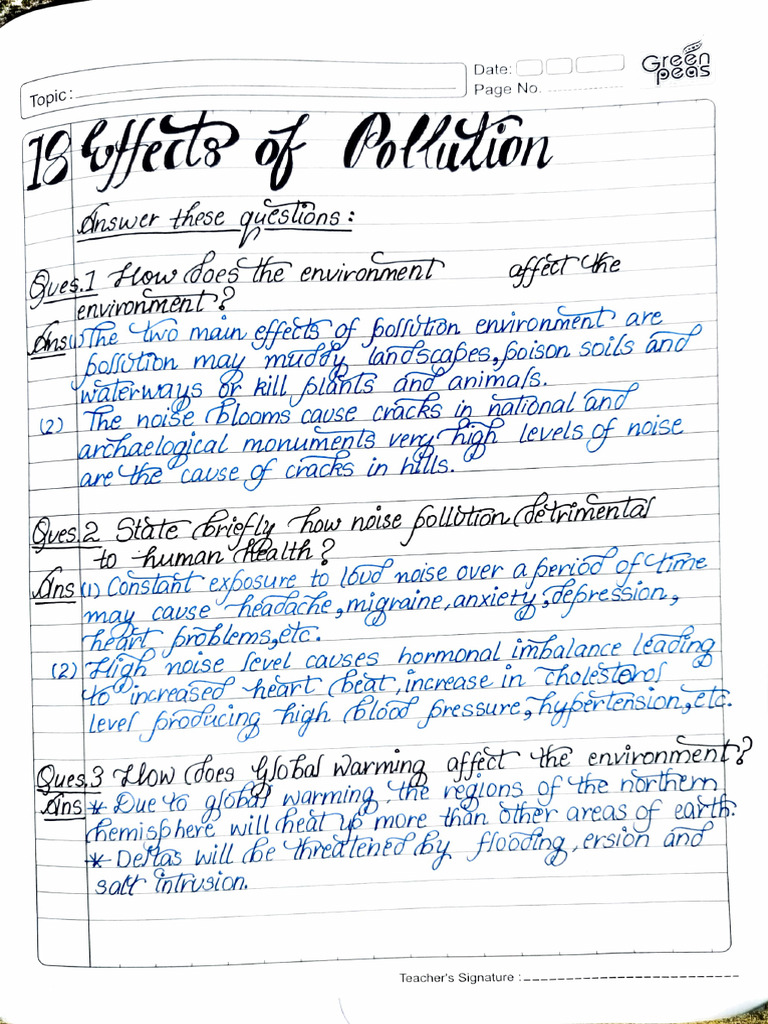 Topic:
Date:
Page No.
Green peas
18 Effects of Pollution
Answer these questions:
Ques.1 How does the environment affect the
environment?
Ans (1) The two main effects of pollution environment are
pollution may muddy landscapes, poison soils and
waterways or kill plants and animals.
(2) The noise blooms cause cracks in national and
archaelogical monuments very high levels of noise
are the cause of cracks in hills.
Ques.2 State briefly how noise pollution detrimental
to human health?
Ans (1) Constant exposure to loud noise over a period of time
may cause headache, migraine, anxiety, depression,
heart problems, etc.
(2) High noise level causes hormonal imbalance leading
to increased heart beat, increase in cholesterol
level producing high blood pressure, hypertension, etc.
Ques.3 How does Global warming affect the environment?
Ans * Due to global warming, the regions of the northern
hemisphere will heat up more than other areas of earth.
* Deltas will be threatened by flooding, ersion and
salt intrusion.
Teacher's Signature :